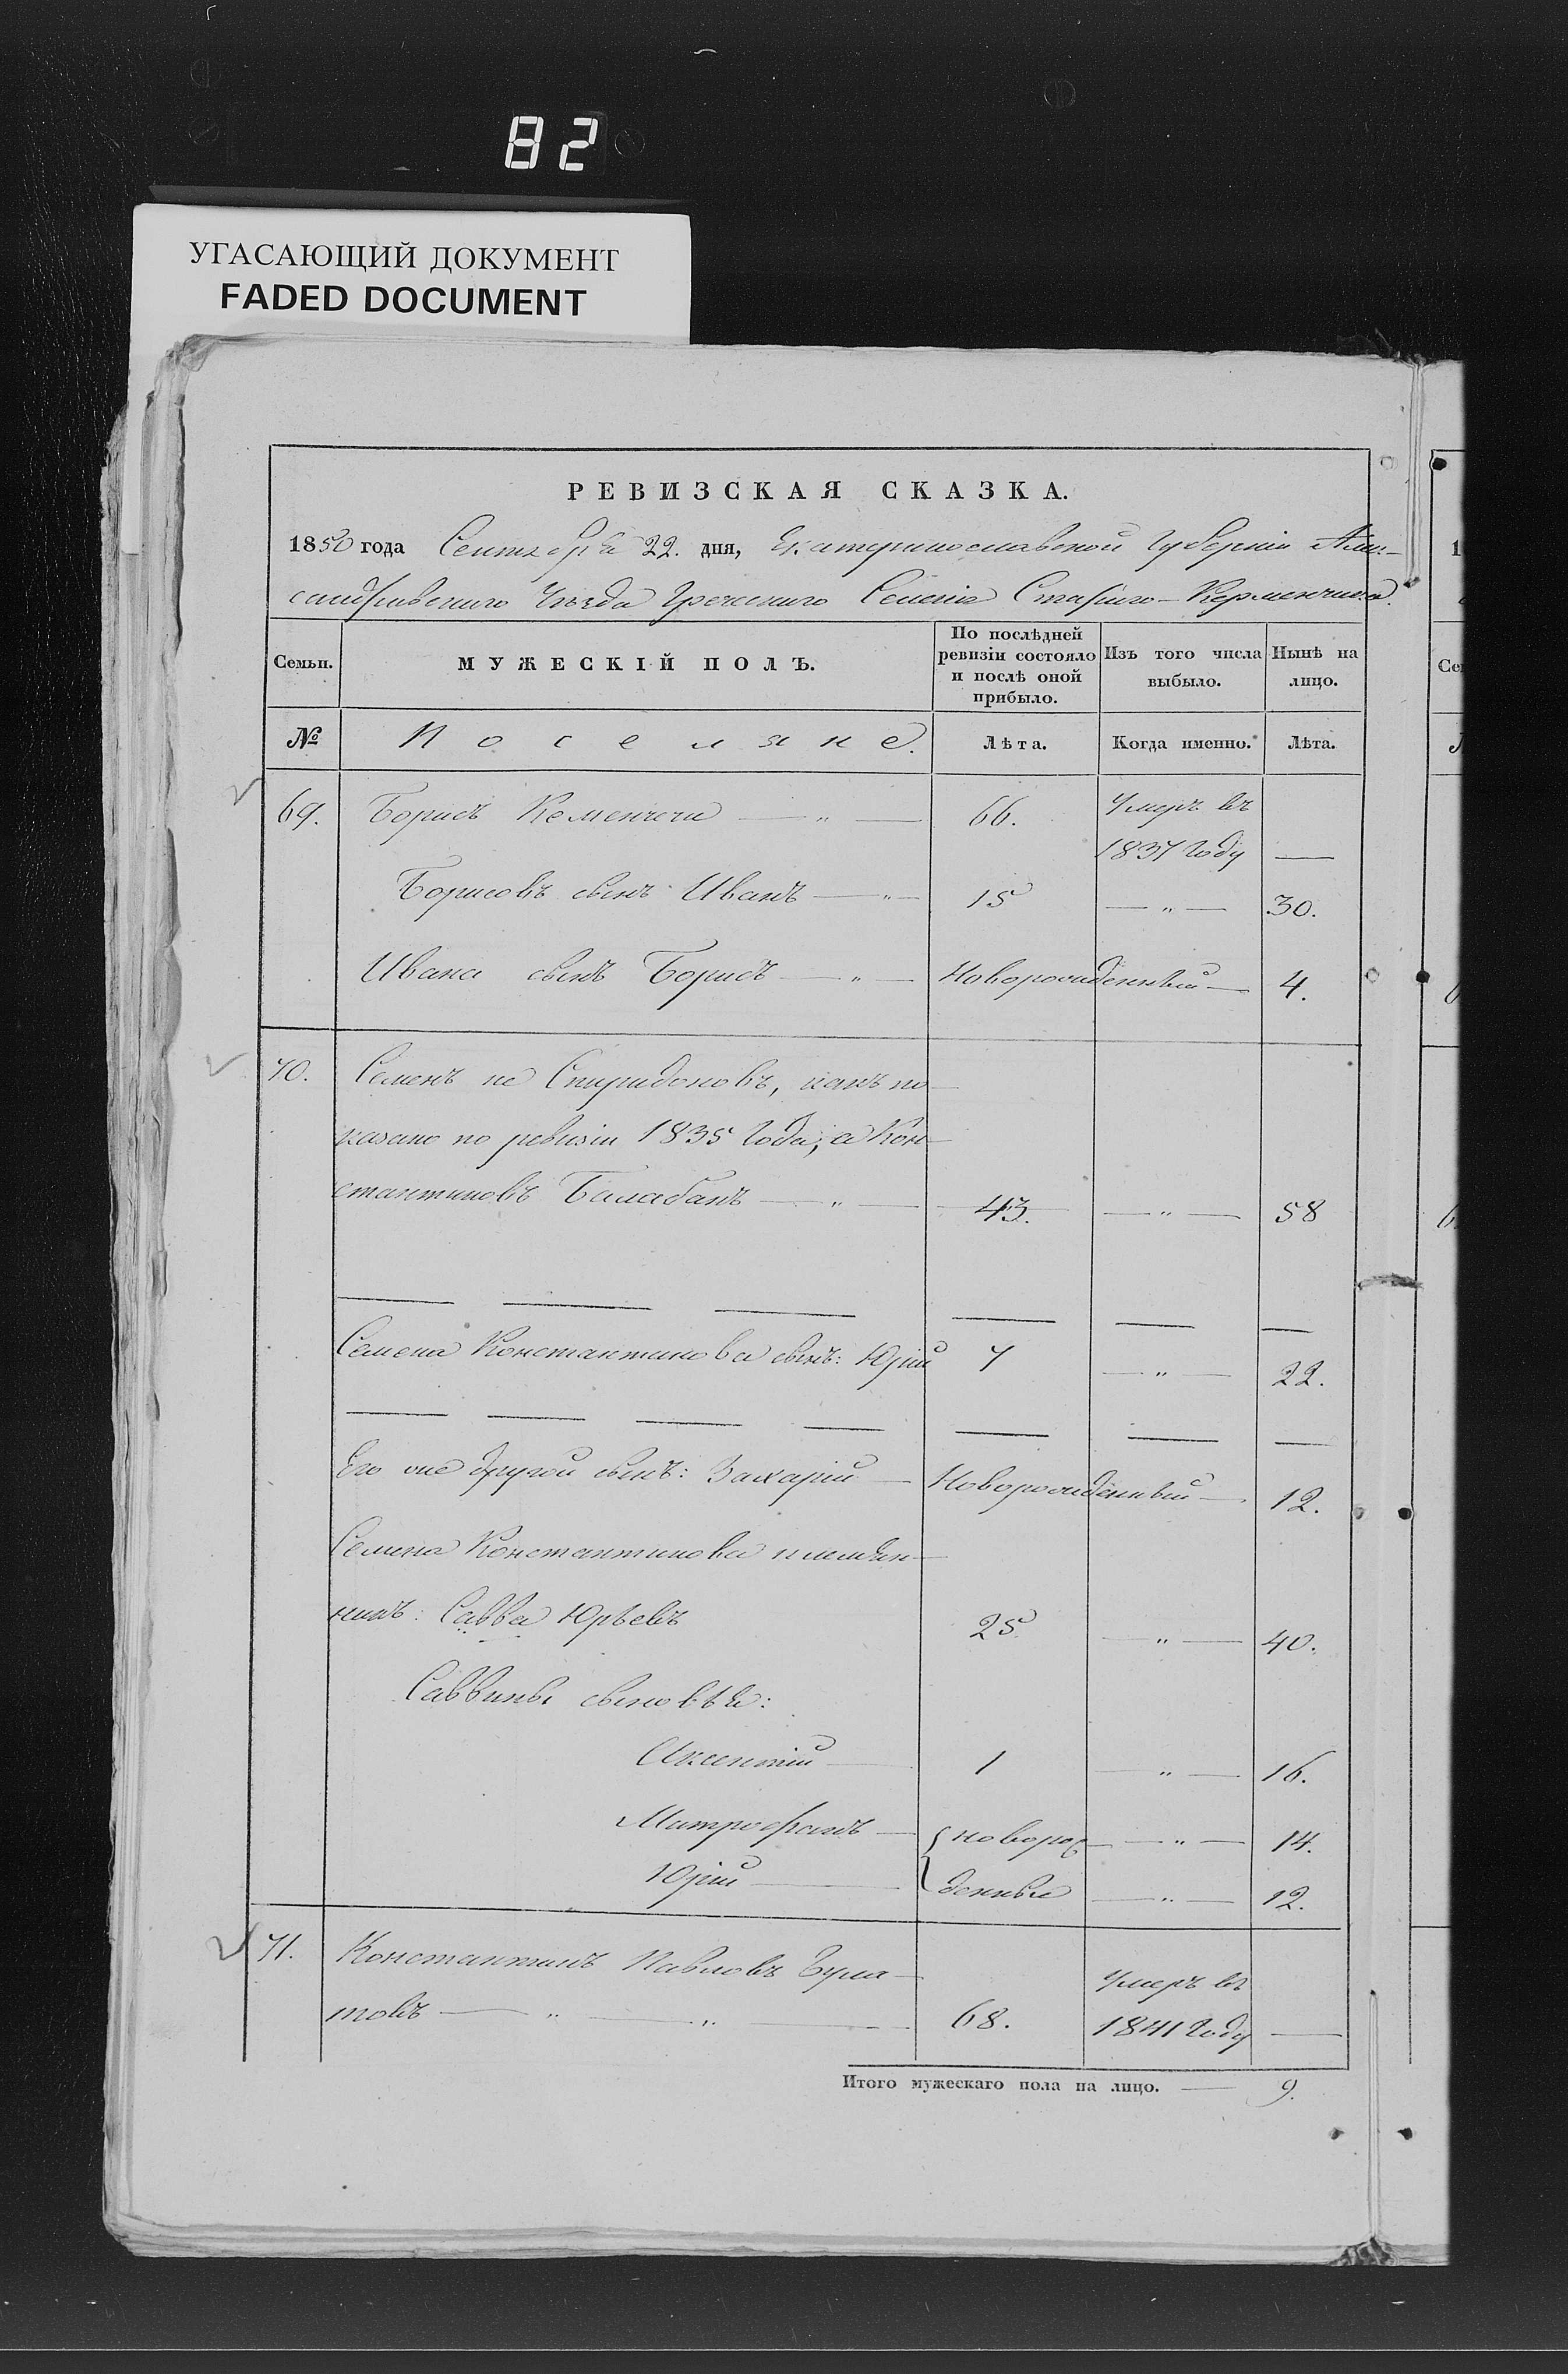 82
УГАСАЮЩИЙ ДОКУМЕНТ
FADED DOCUMENT
РЕВИЗСКАЯ СКАЗКА.
1850 года Сентября 22. дня, Екатеринославской Губерніи Алек-
сандровскаго Уѣзда Греческаго Селенія Стараго-Керменчика.
Семьи. МУЖЕСКІЙ ПОЛЪ. По послѣдней ревизіи состояло и послѣ оной прибыло. Изъ того числа выбыло. Нынѣ на лицо.
№ Поселяне. Лѣта. Когда именно. Лѣта.
69. Борисъ Кеменчеи — „ — 66. Умеръ въ
1837 году —
Борисовъ сынъ Иванъ — „ — 15 — „ — 30.
Ивана сынъ Борисъ — „ — Новорожденный — 4.
70. Семенъ не Спиридоновъ, какъ по-
казано по ревизіи 1835 года, а Кон-
стантиновъ Балабанъ — „ — 43. — „ — 58
Семена Константинова сынъ: Юрій 7 — „ — 22.
Его же другой сынъ: Захарій — Новорожденный — 12.
Семена Константинова племян-
никъ: Савва Юрьевъ 25 — „ — 40.
Саввины сыновья:
Аксентій — 1 — „ — 16.
Митрофанъ — новорож- — „ — 14.
Юрій — денные — „ — 12.
71. Константинъ Павловъ Була-
товъ — „ — „ — 68. Умеръ въ
1841 году —
Итого мужескаго пола на лицо. — 9.